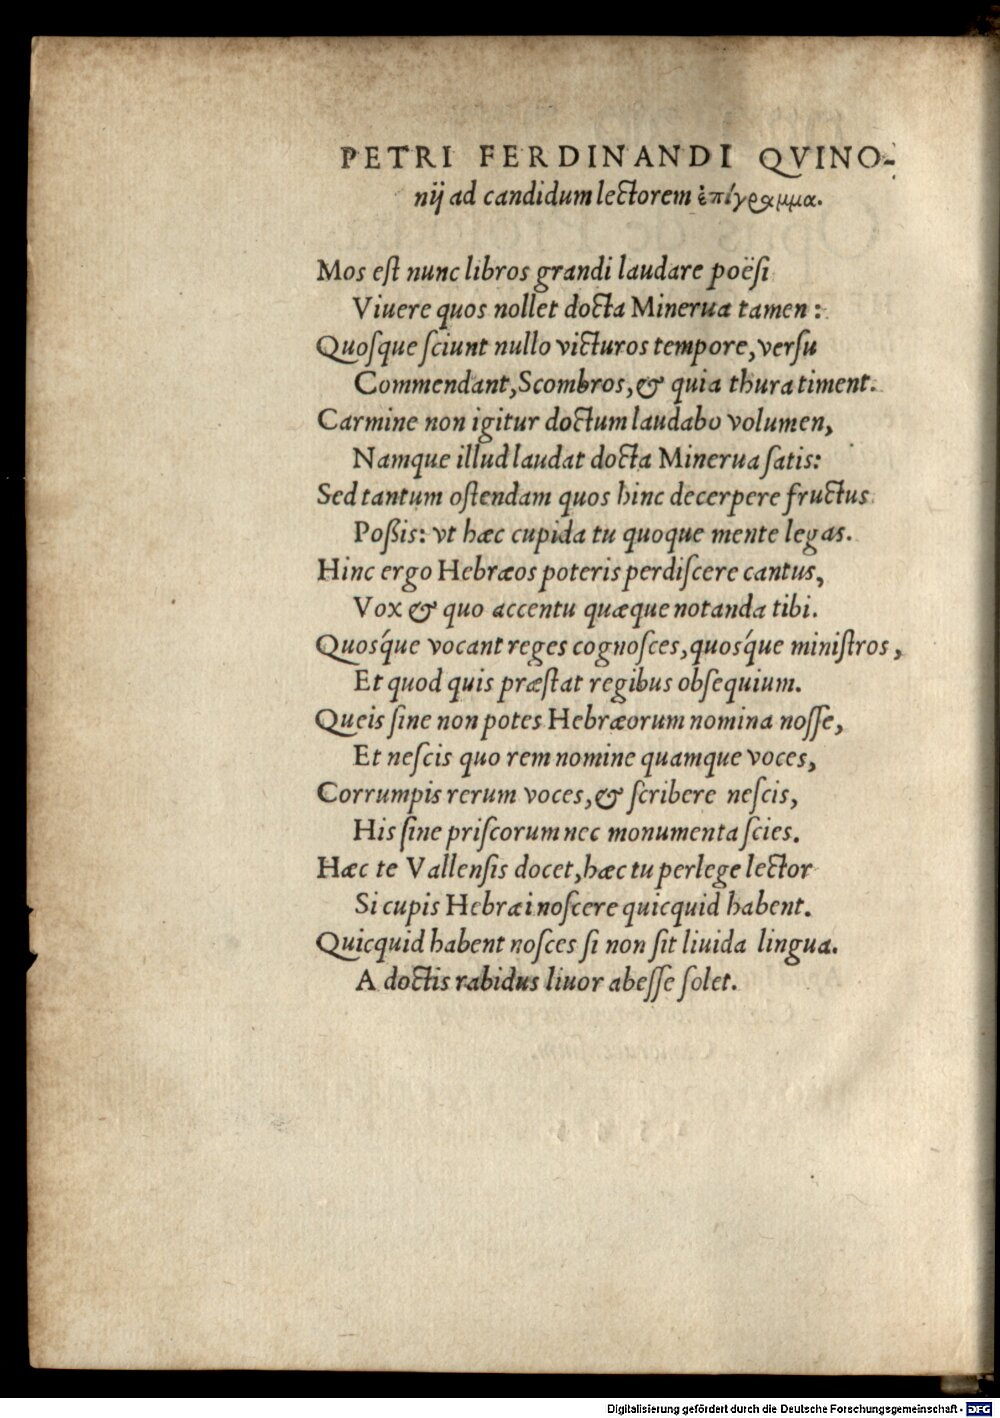 PETRI FERDINANDI QVINO-
nij ad candidum lectorem ἐπίγραμμα.
Mos est nunc libros grandi laudare poësi
Viuere quos nollet docta Minerua tamen:
Quosque sciunt nullo victuros tempore, versu
Commendant, Scombros, & quia thura timent.
Carmine non igitur doctum laudabo volumen,
Namque illud laudat docta Minerua satis:
Sed tantum ostendam quos hinc decerpere fructus
Poßis: vt hæc cupida tu quoque mente legas.
Hinc ergo Hebræos poteris perdiscere cantus,
Vox & quo accentu quæque notanda tibi.
Quosq́ue vocant reges cognosces, quosq́ue ministros,
Et quod quis præstat regibus obsequium.
Queis sine non potes Hebræorum nomina nosse,
Et nescis quo rem nomine quamque voces,
Corrumpis rerum voces, & scribere nescis,
His sine priscorum nec monumenta scies.
Hæc te Vallensis docet, hæc tu perlege lector
Si cupis Hebræi noscere quicquid habent.
Quicquid habent nosces si non sit liuida lingua.
A doctis rabidus liuor abesse solet.
Digitalisierung gefördert durch die Deutsche Forschungsgemeinschaft - DFG